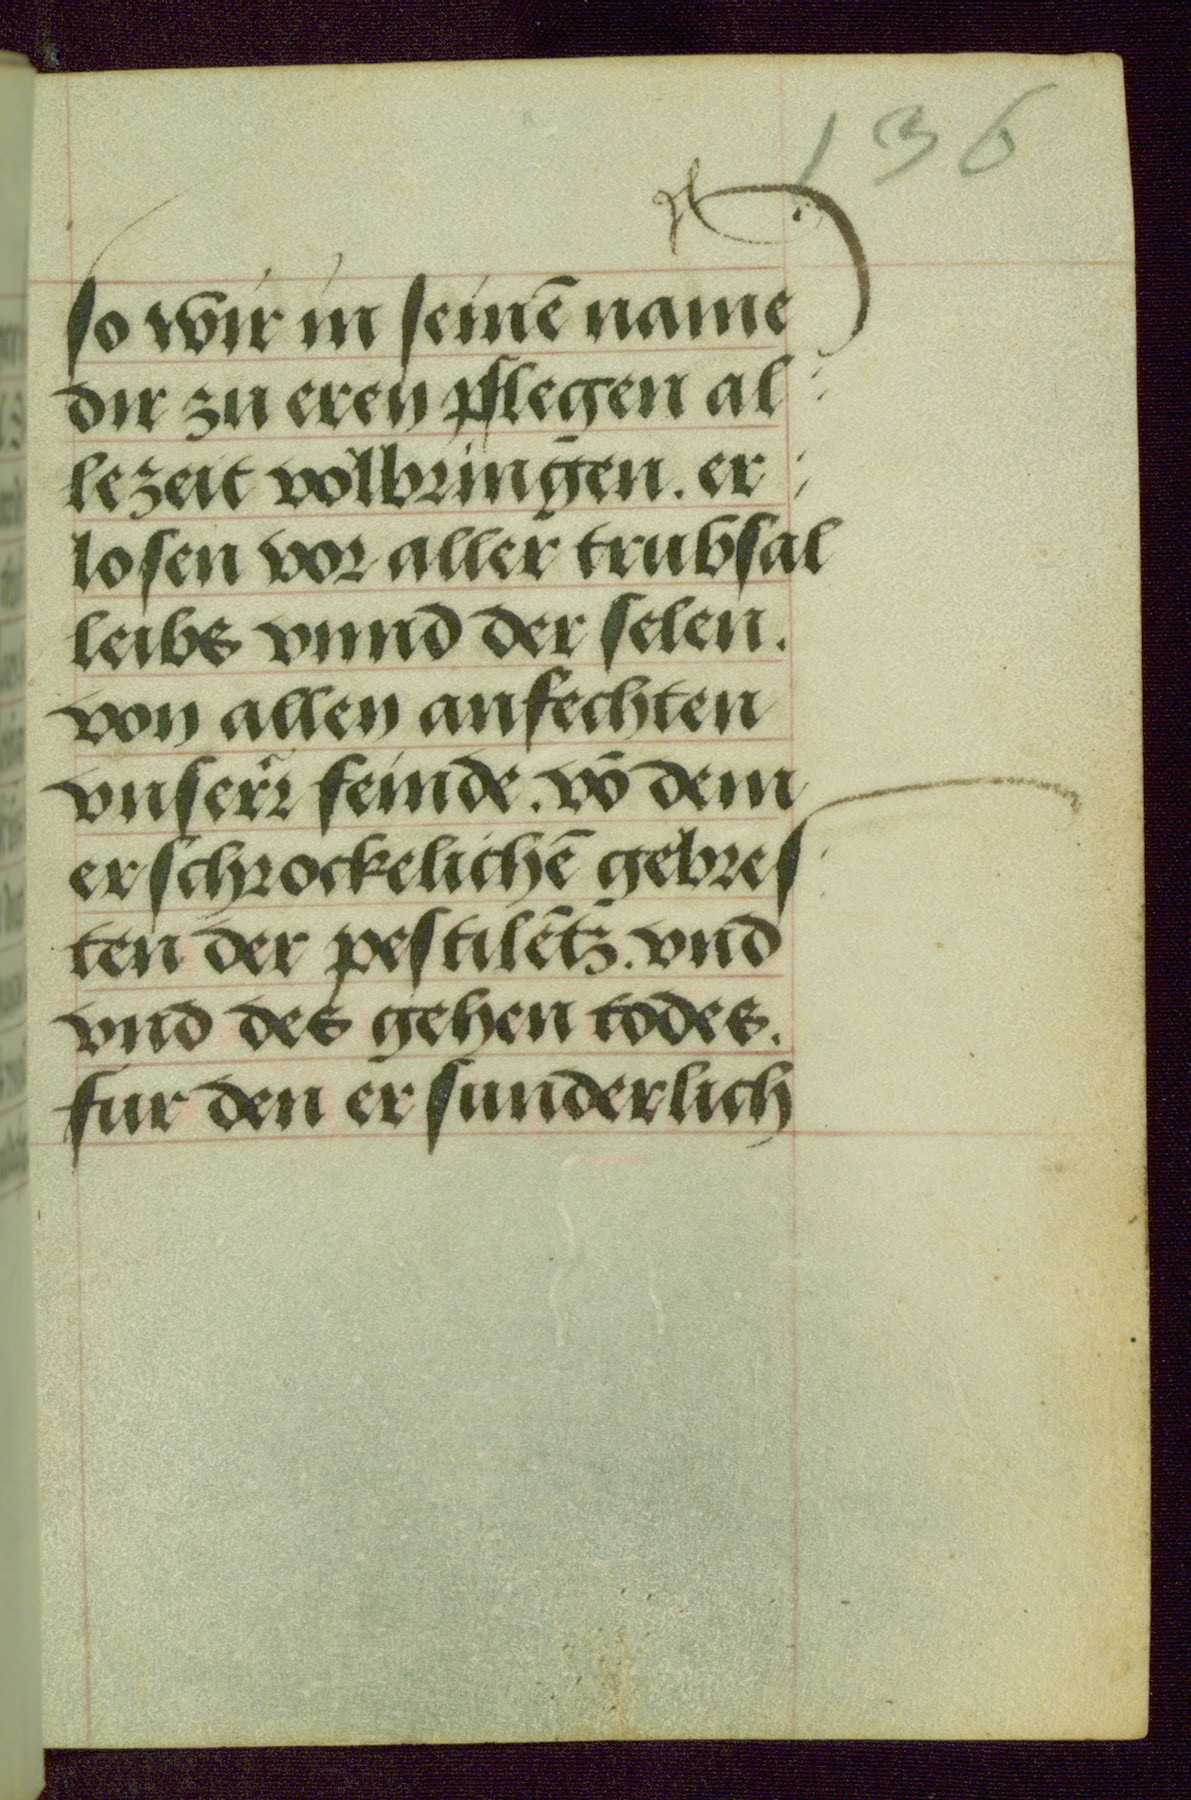 136
so wir in seinē name
dir zu eren pflegen al
lezeit volbringen. er
losen vor aller trubsal
leibs vnnd der selen.
von allen anfechten
vnserr feinde. vō dem
erschrockelichē gebres
ten der pestilētz. vnd
vnd des gehen todes.
fur den er sunderlich